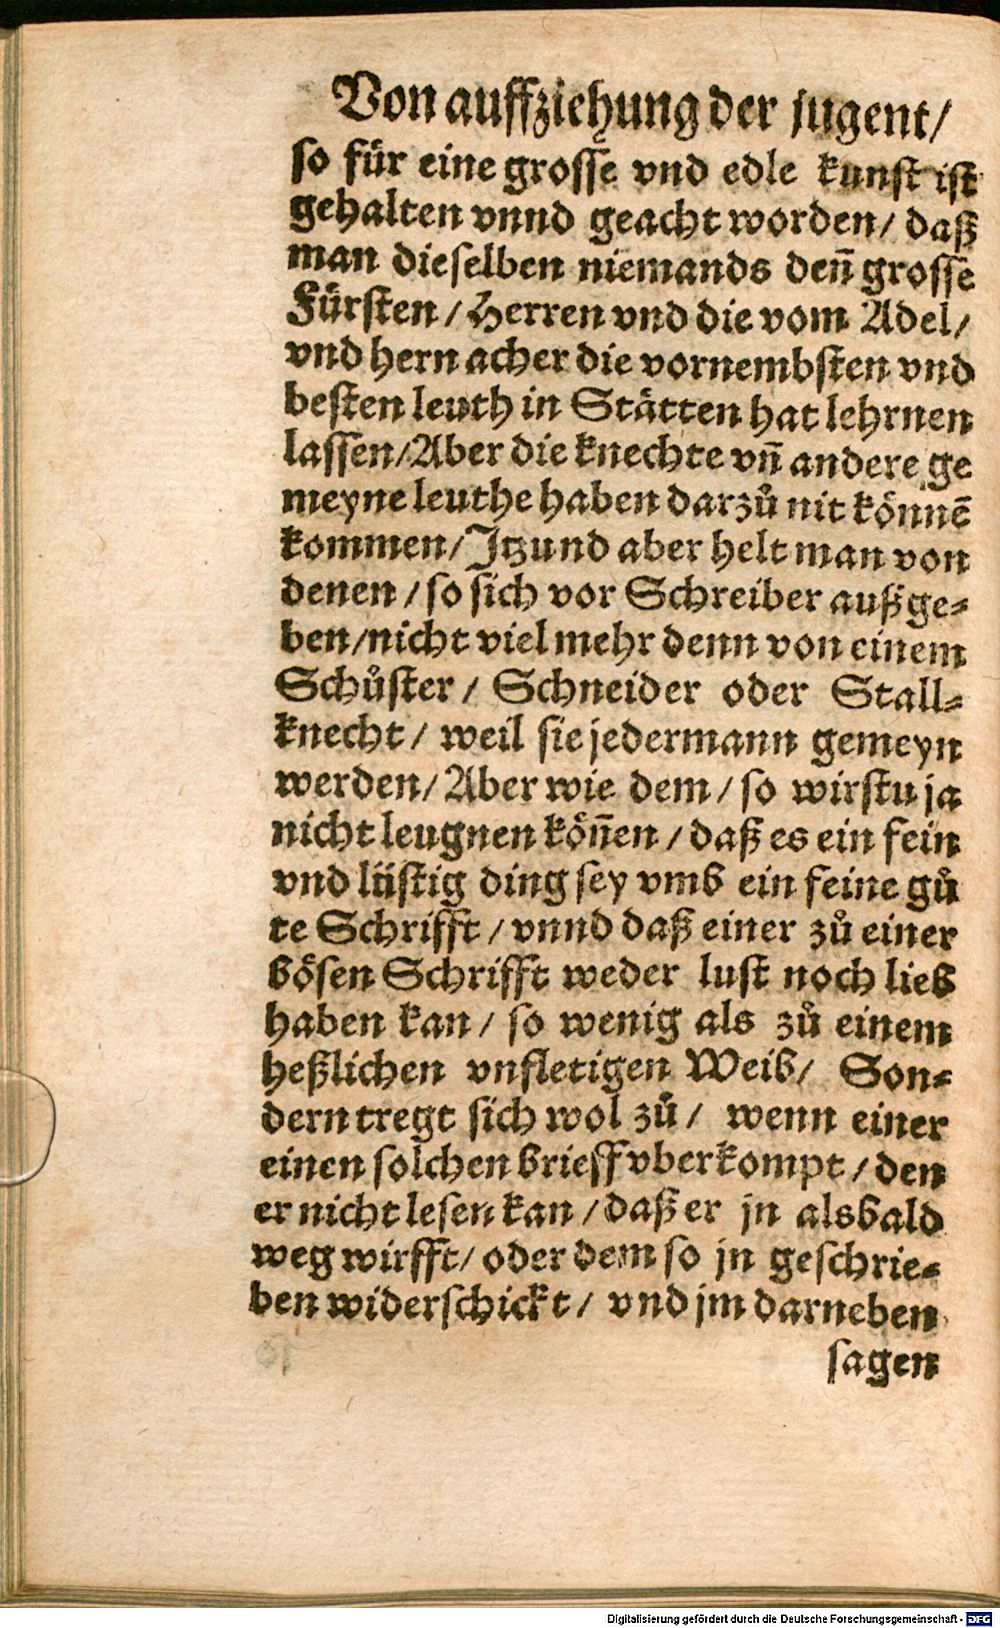 Von auffziehung der jugent/
so für eine grosse vnd edle kunst ist
gehalten vnnd geacht worden/ daß
man dieselben niemands deñ grosse
Fürsten/ Herren vnd die vom Adel/
vnd hernacher die vornembsten vnd
besten leuth in Stätten hat lehrnen
lassen/ Aber die knechte vñ andere ge
meyne leuthe haben darzů nit könnē
kommen/ Jtzund aber helt man von
denen/ so sich vor Schreiber außge⸗
ben/ nicht viel mehr denn von einem
Schůster/ Schneider oder Stall⸗
knecht/ weil sie jedermann gemeyn
werden/ Aber wie dem/ so wirstu ja
nicht leugnen köñen/ daß es ein fein
vnd lüstig ding sey vmb ein feine gů
te Schrifft/ vnnd daß einer zů einer
bösen Schrifft weder lust noch lieb
haben kan/ so wenig als zů einem
heßlichen vnfletigen Weib/ Son⸗
dern tregt sich wol zů/ wenn einer
einen solchen brieff vberkompt/ den
er nicht lesen kan/ daß er jn alsbald
weg wirfft/ oder dem so jn geschrie⸗
ben widerschickt/ vnd jm darneben
sagen
Digitalisierung gefördert durch die Deutsche Forschungsgemeinschaft - DFG